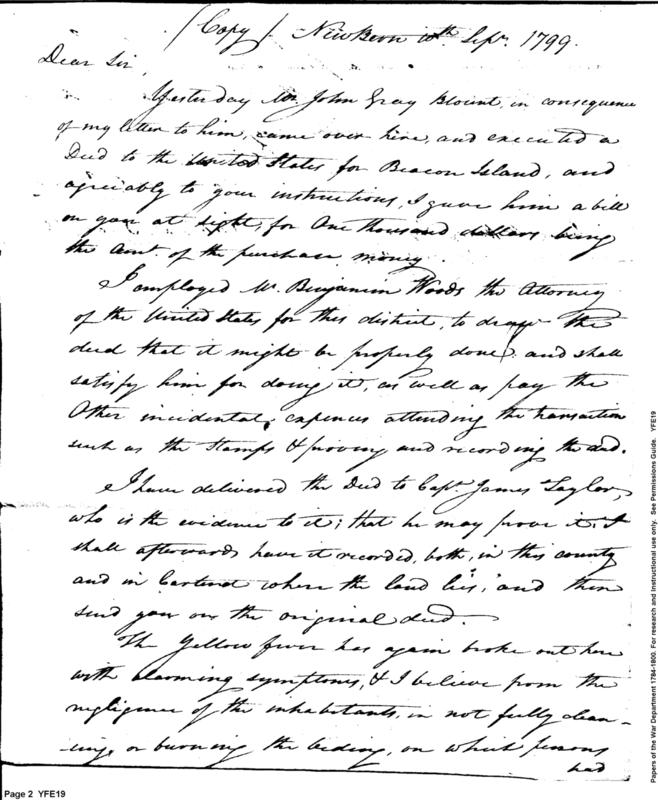 (Copy). NewBern 10th. Sepr. 1799.
Dear Sir,
Yesterday Mr. John Gray Blount, in consequence
of my letter to him, came over here, and executed a
Deed to the United States for Beacon Island, and
agreiably to your instructions, I gave him a bill
on you at sight, for One thousand dollars being
the Amt. of the purchase money.
I employed Mr. Benjamin Woods the Attorney
of the United States for this district, to draw the
deed that it might be properly done, and shall
satisfy him for doing it, as well as pay the
Other incidental expences attending the transaction
such as the Stamps & proving and recording the deed.
I have delivered the Deed to Capt. James Taylor,
who is the evidence to it; that he may prove it. I
shall afterwards have it recorded, both, in this county
and in Carteret where the land lies, and then
send you on the original deed.
The Yellow fever has again broke out here
with alarming symptoms, & I believe from the
negligence of the inhabitants, in not fully clean-
ing, or burning the beding, on which persons
had
Page 2 YFE19
Papers of the War Department 1784-1800. For research and Instructional use only. See Permissions Guide. YFE19